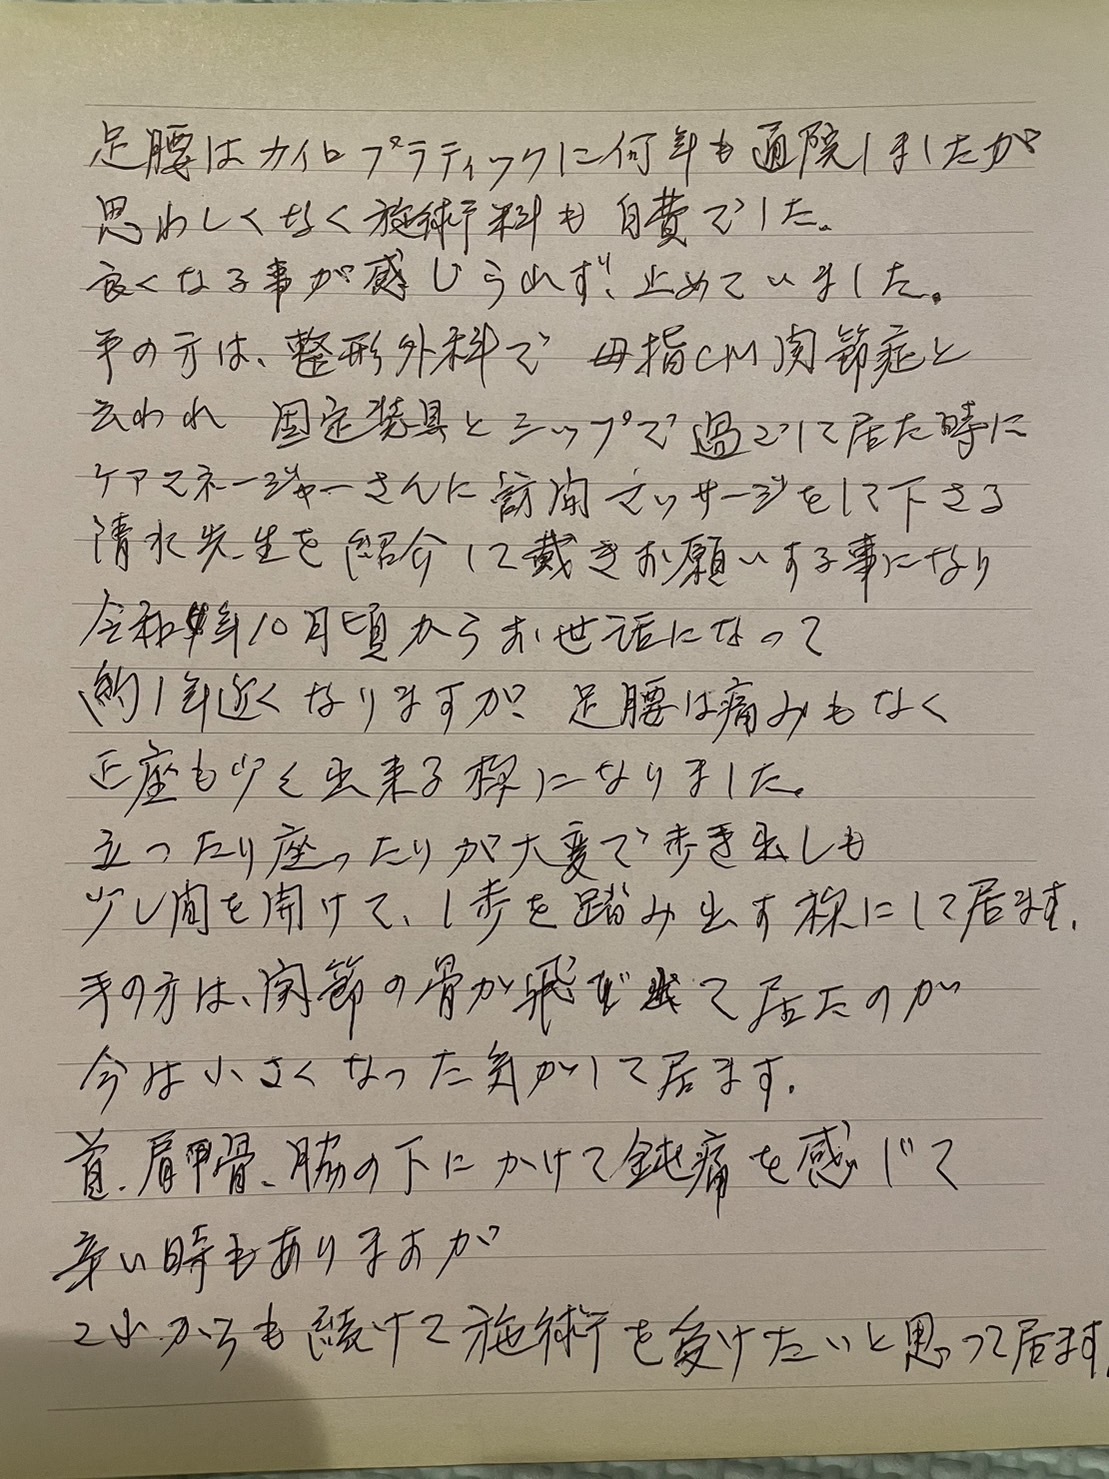 足腰はカイロプラティックに何年も通院しましたが
思わしくなく施術料も自費でした。
良くなる事が感じられず、止めていました。
手の方は、整形外科で 母指CM関節症と
云われ 固定装具とシップで過ごして居た時に
ケアマネージャーさんに訪問マッサージをして下さる
清水先生を紹介して戴きお願いする事になり
令和 年10月頃からお世話になって
約1年近くなりますが、足腰は痛みもなく
正座も少々出来る様になりました。
立ったり座ったりが大変で歩き出しも
少し間を開けて、1歩を踏み出す様にして居ます。
手の方は、関節の骨が飛び出て居たのが
今は小さくなった気がして居ます。
首、肩甲骨、脇の下にかけて鈍痛を感じて
辛い時もありますが
これからも続けて施術を受けたいと思って居ます。